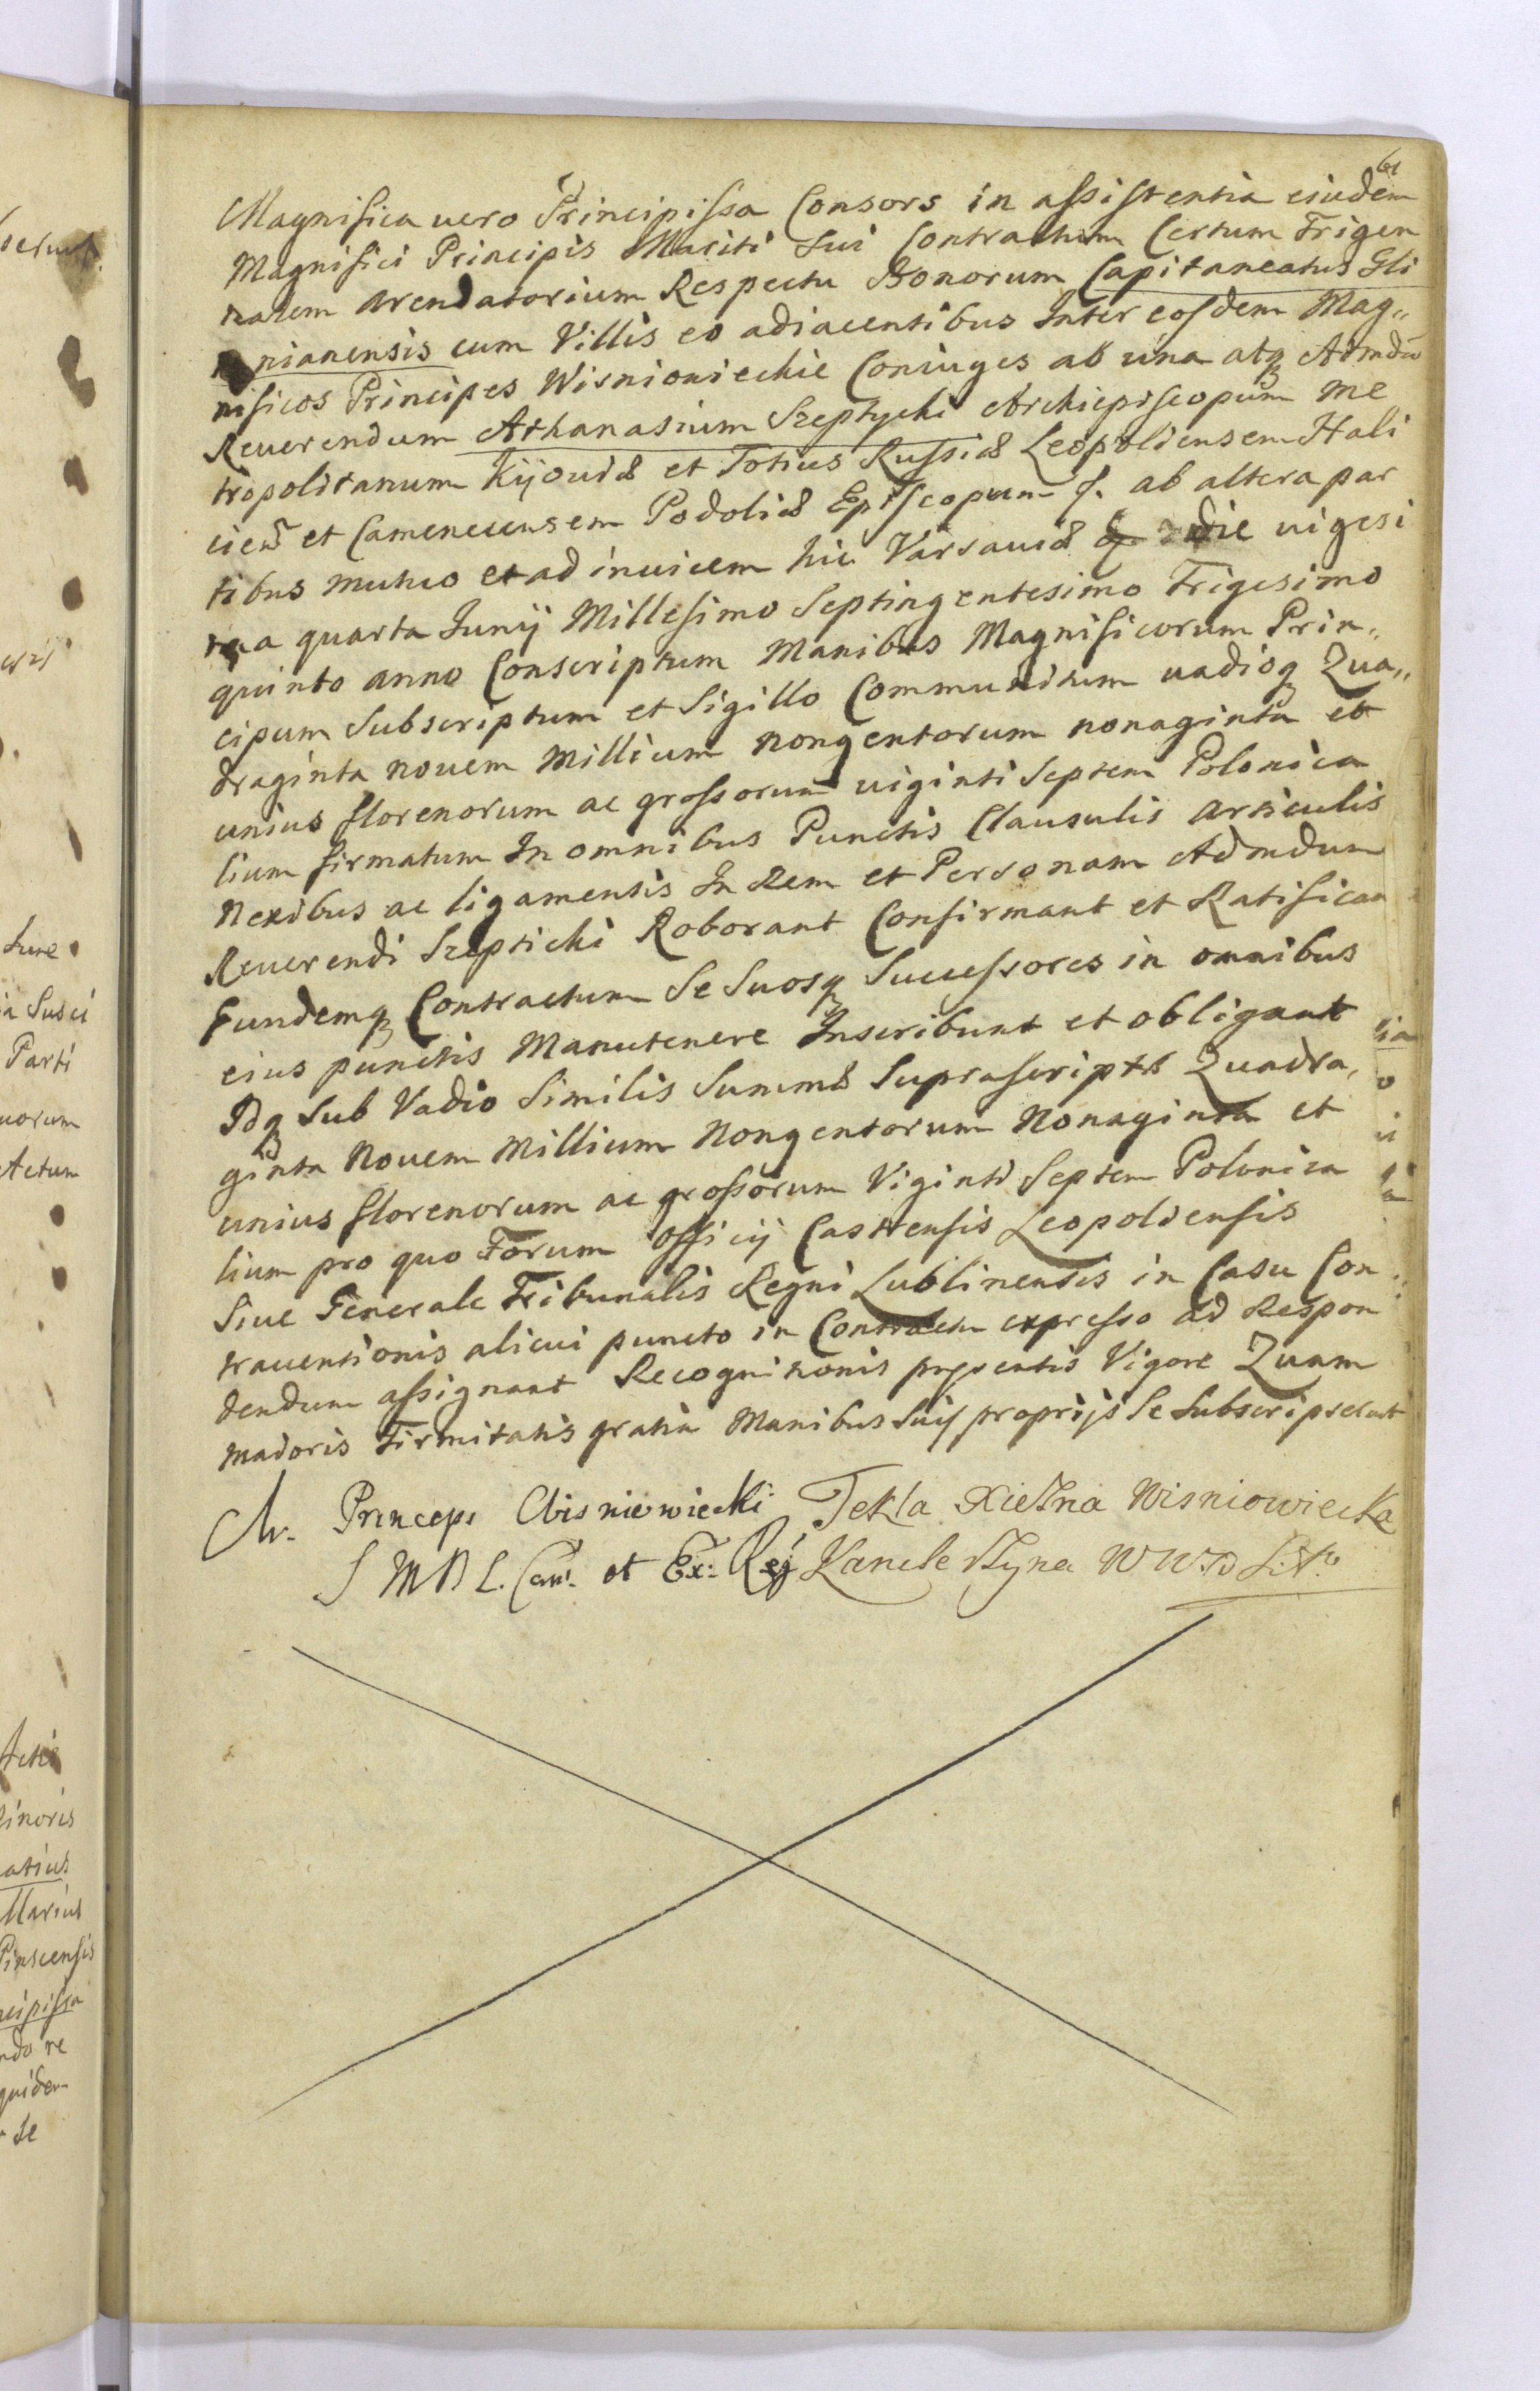 61
Magnifica uero Principissa Consors in assistentia eiusdem
Magnifici Principis Mariti Sui Contractum Certum Trigen
nalem arendatorium Respectu Bonorum Capitaneatus Gli
nianensis cum Villis eo adiacentibus Inter eosdem Mag„
nificos Principes Wisnioniechie Coniuges ab una atq Admdū
Reuerendum Athanasium Szeptycki Archiepiscopum Me
tropolitanum Kijouiæ et Totius Russiæ Leopoliensem Hali
cien̄ et Camenecensem Podoliæ Episcopum ab altera par
tibus mutuo et ad inuicem hic Varsauiæ die uigesi
ma quarta Junij Millesimo Septingentesimo Trigesimo
quinto anno Conscriptum Manibus Magnificorum Prin„
cipum Subscriptum et Sigillo Communitum uadioq Qua„
draginta nouem Millium nongentorum nonaginta et
unius florenorum ac grossorum uiginti Septem Polonica
lium firmatum In omnibus Punctis Clausulis articulis
Nexibus ac ligamentis In Rem et Personam Admdum
Reuerendi Szeptichi Roborant Confirmant et Ratifican
Eundemq Contractum Se Suosq Successores in omnibus
eius punctis Manutenere Inscribunt et obligant
Idq Sub Vadio Similis Summæ Suprascriptæ Quadra,
ginta Nouem Millium Nongentorum Nonaginta et
unius florenorum ac grossorum Viginti Septem Polonica
lium pro quo Forum Officij Castrensis Leopoliensis
Siue Generale Tribunalis Regni Lublinensis in Casu Con
trauentionis alicui puncto in Contractu expresso ad Respon
dendum assignant Recognitionis præsentis Vigore Quam
Maioris Firmitatis gratia Manibus Suis proprijs Se Subscripserunt
M. Princeps Wisniowiecki Tekla Xiężna Wisniowiecka
S M D L. Can. et Ex: Kancle rżyna W W. D Lit.